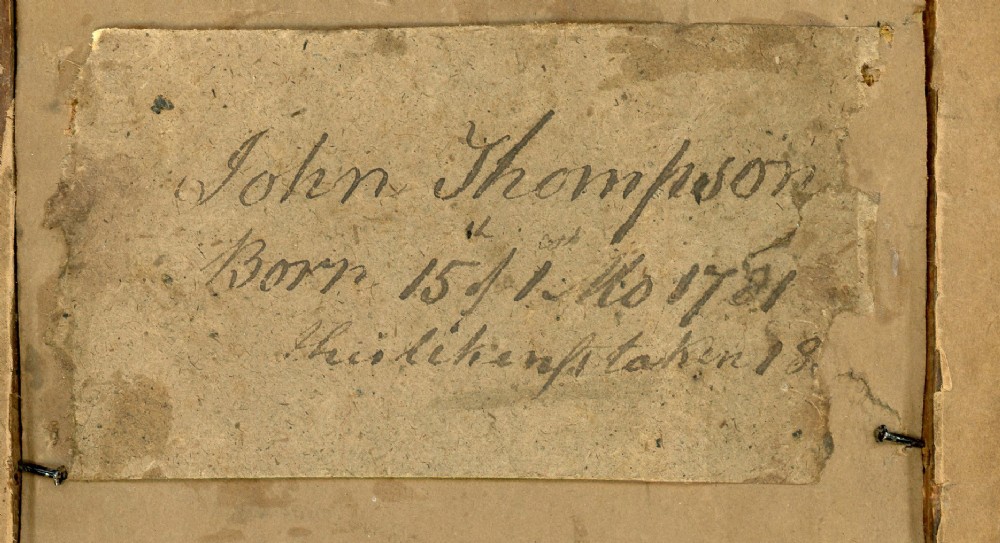 John Thompson
Born 15th of 1st Mo 1781
this likeness taken 18